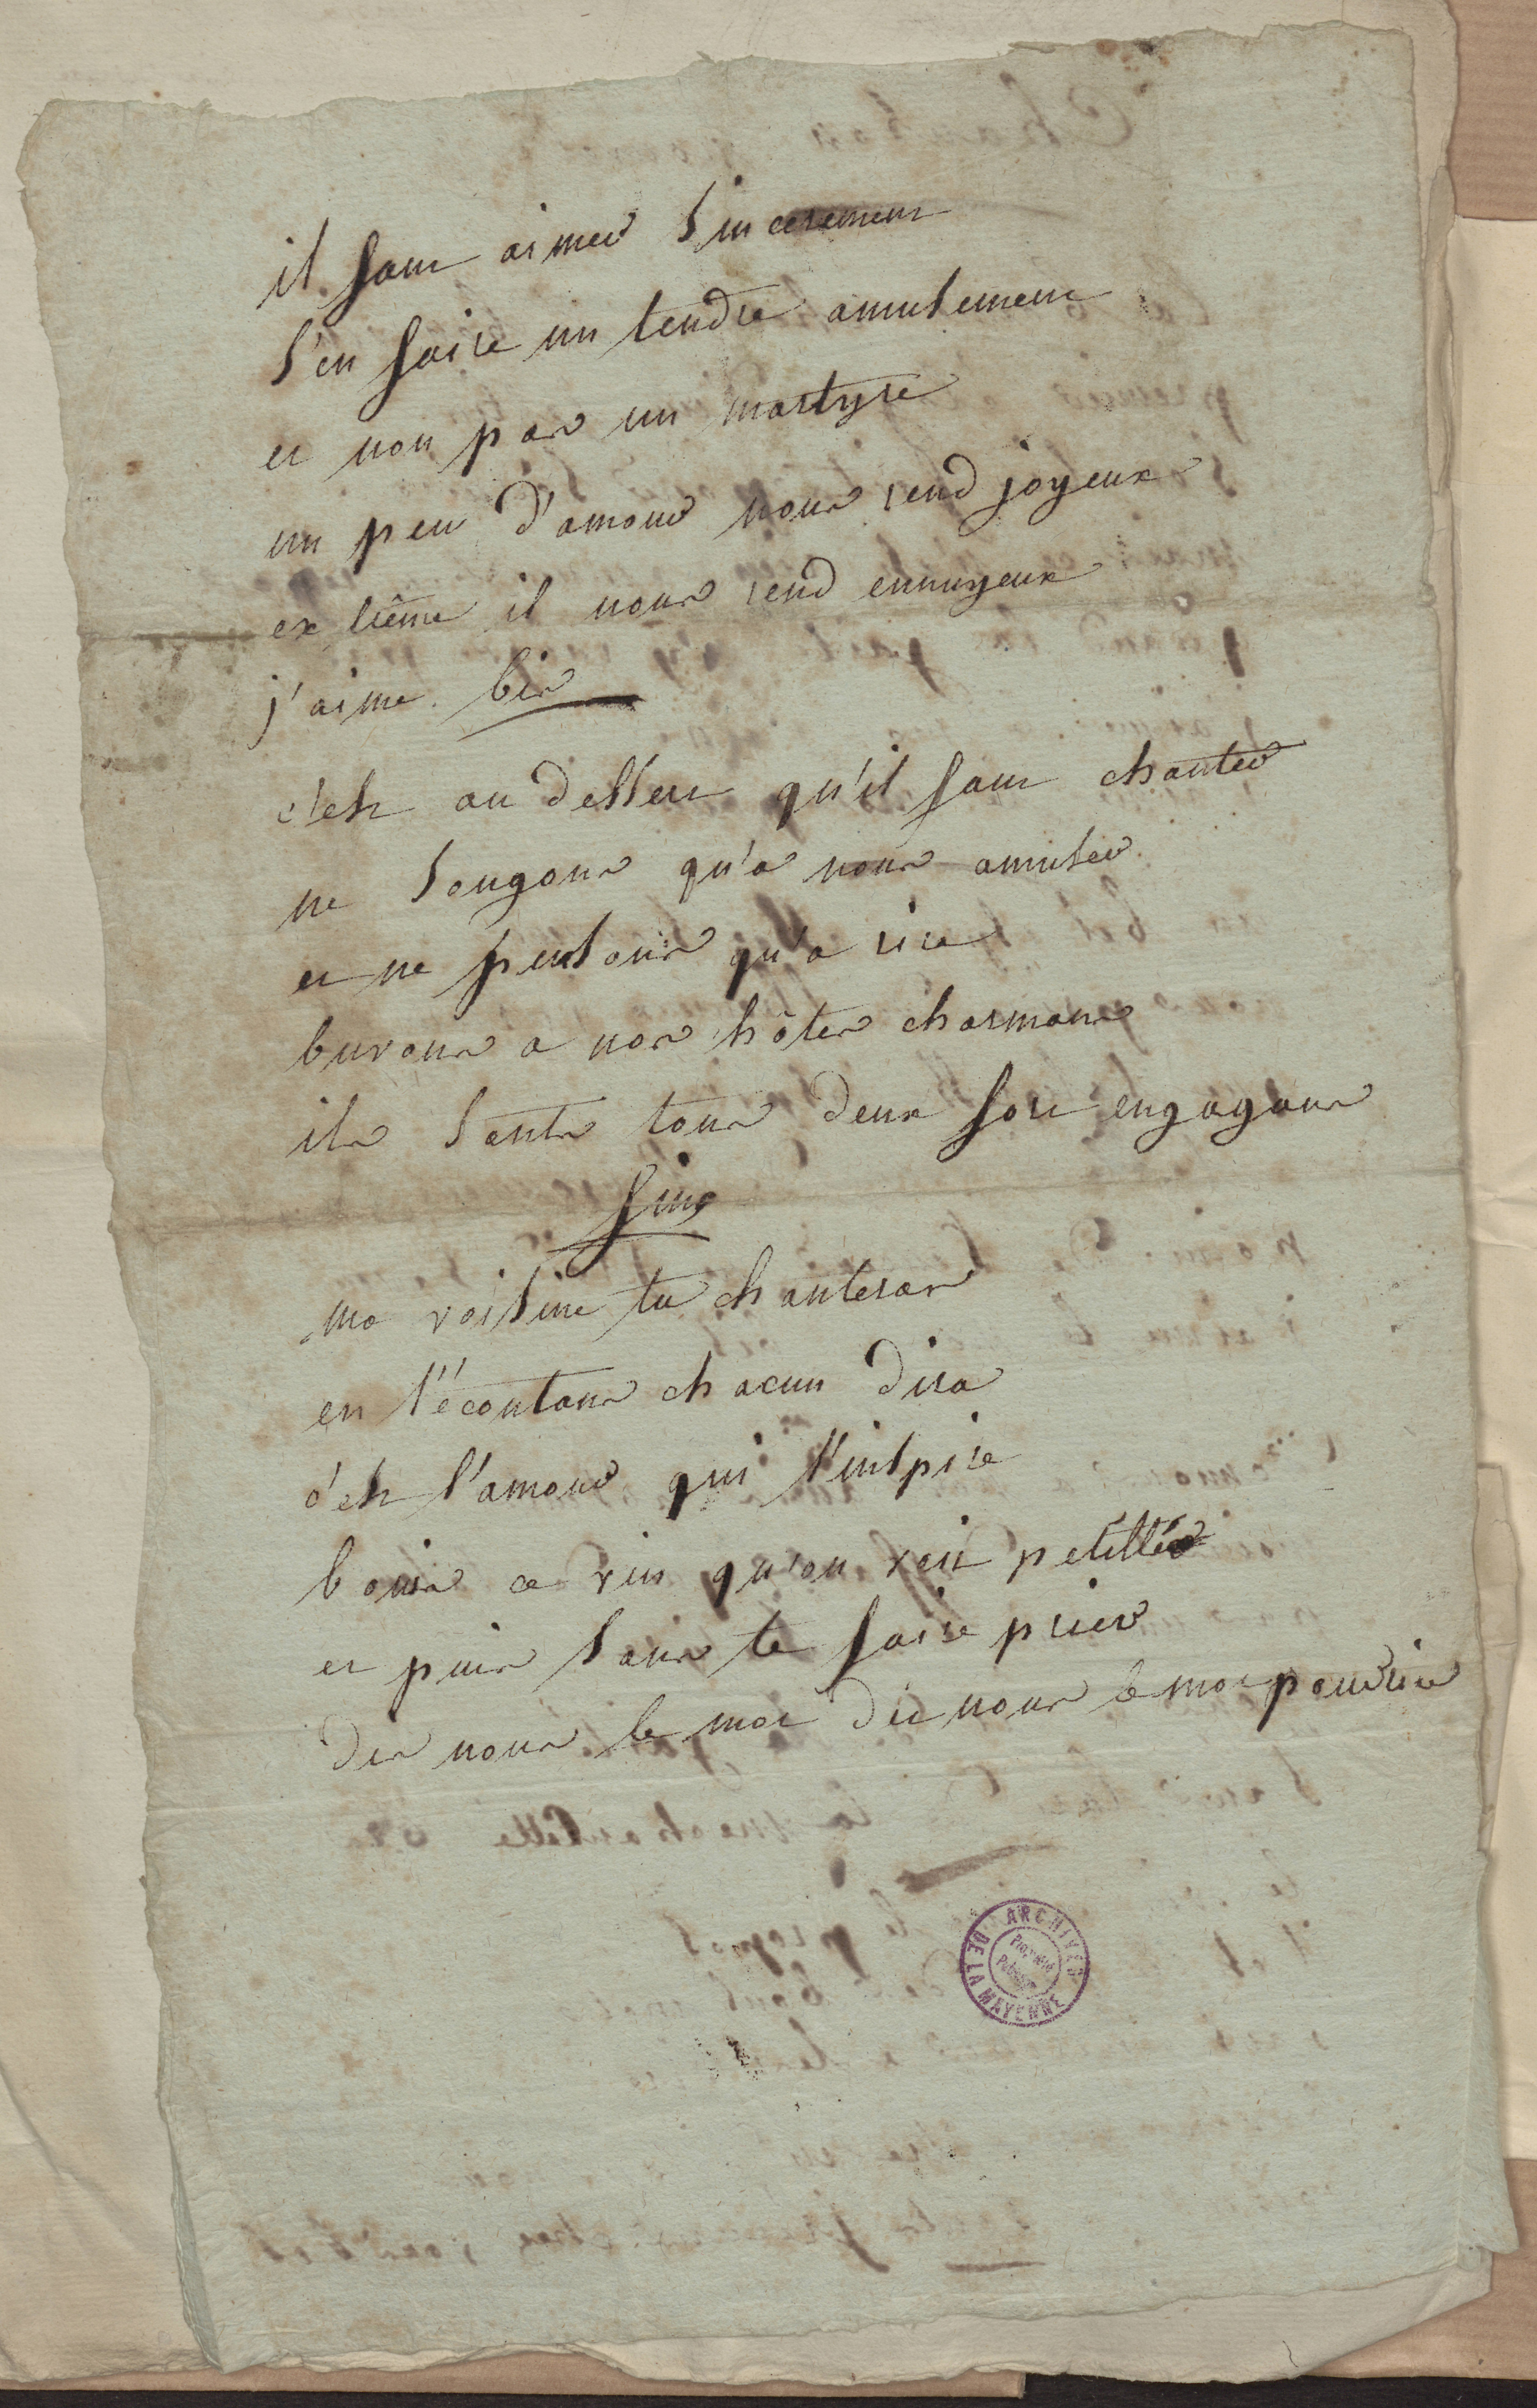 il faut aimer sincerement
s'en faire un tendre amusement
et non pas un martyre
un peu d'amour nous rend joyeux
extrême il nous rend ennuyeux
j'aime bis
c'est au dessert qu'il faut chanter
ne songons qu'a nous amuser
et ne pensons qu'a rire
buvons a nos hôtes charmans
ils sonts tous deux fort engagans
fin
ma voisine tu chanteras
en t'écoutant chacun dira
c'est l'amour qui t'inspire
bois ce vin qu'on voit petiller
et puis sans te faire prier
dis nous le mot dit nous le mot pour rire
ARCHIVES DE LA MAYENNE